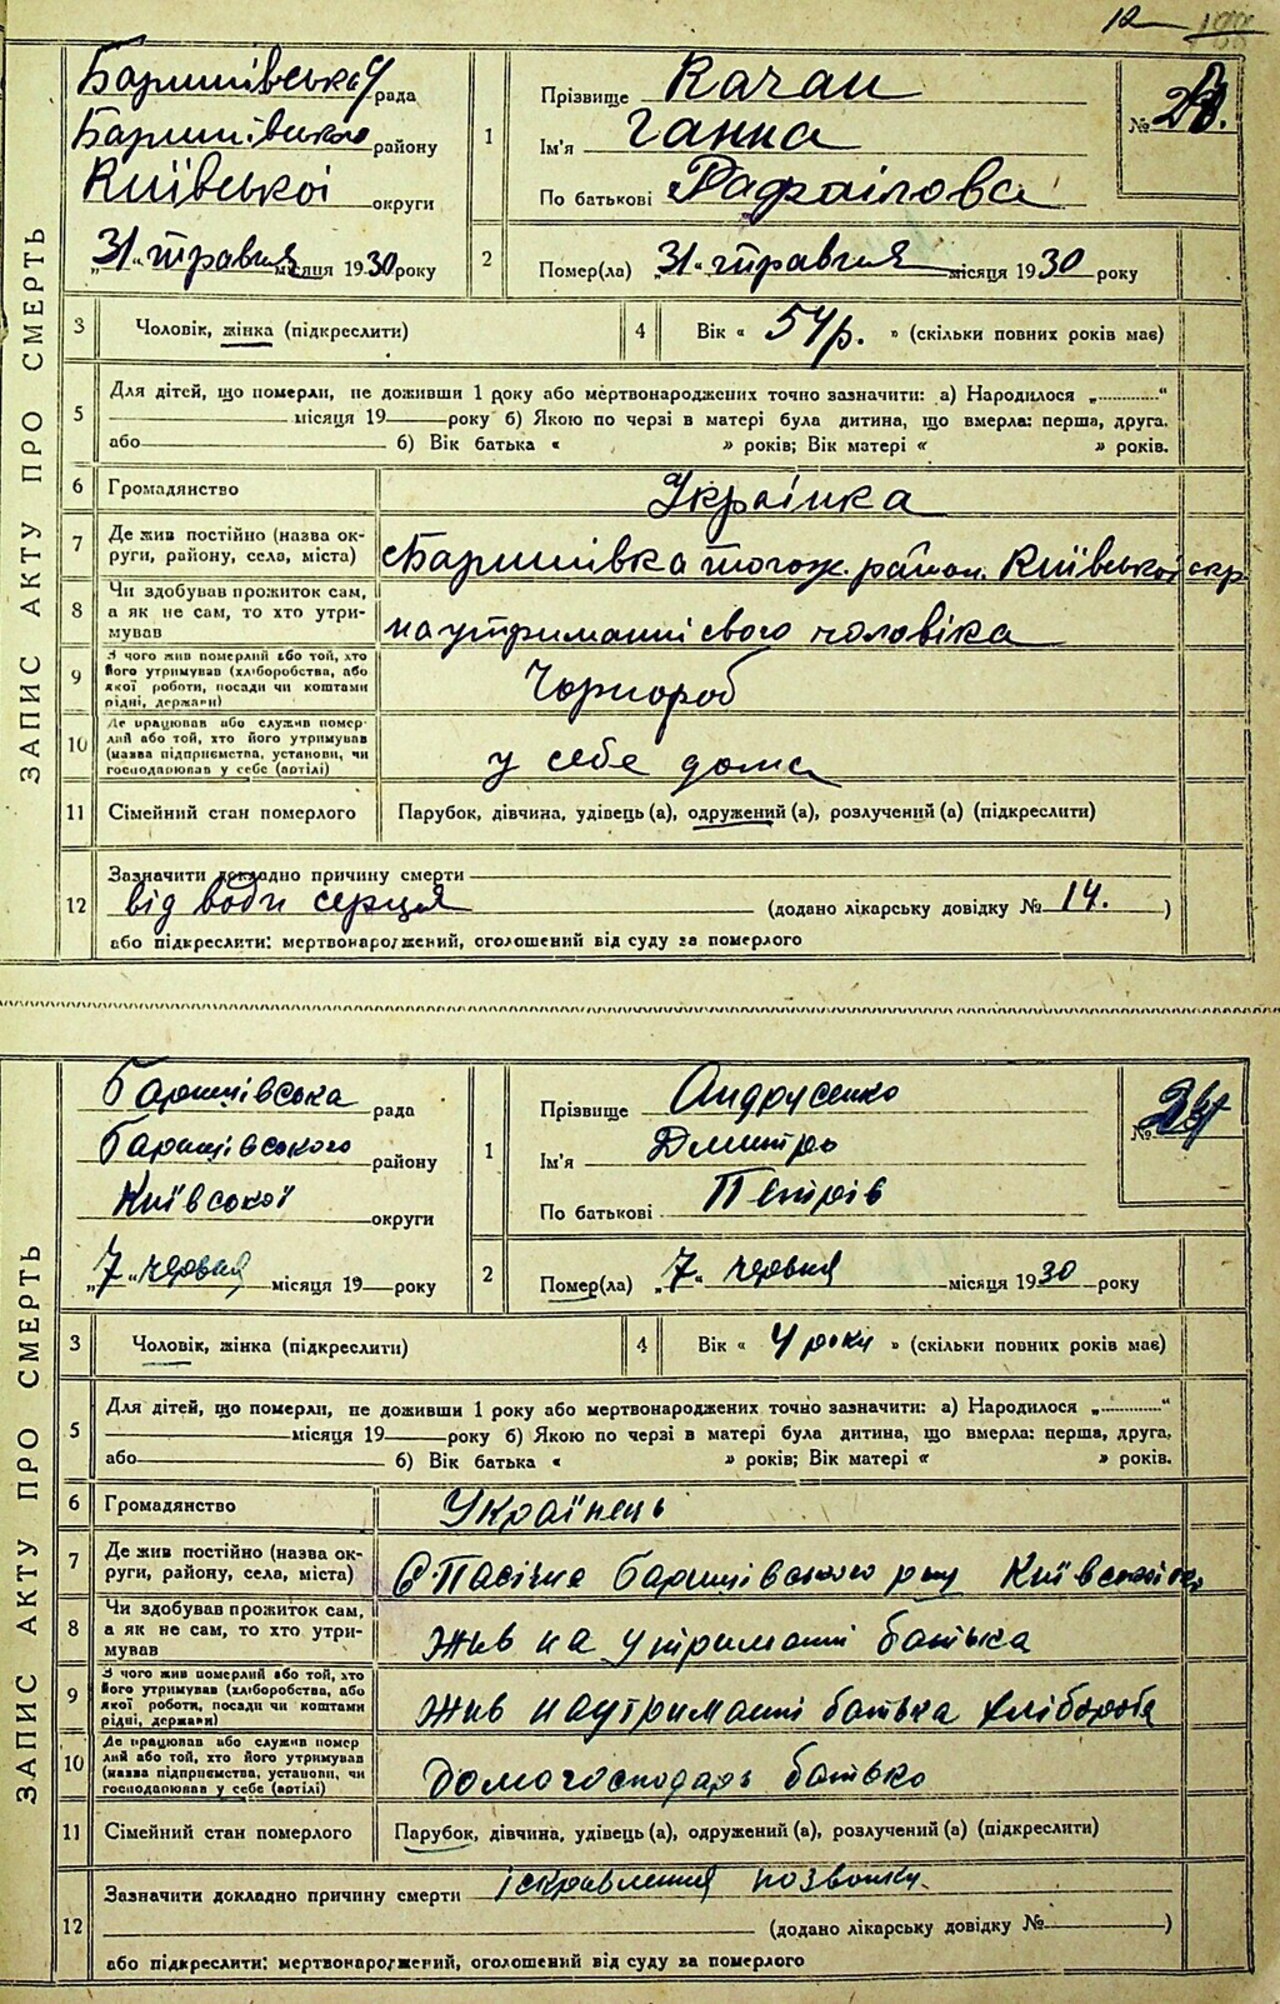 12
ЗАПИС АКТУ ПРО СМЕРТЬ
Баришівська рада
Баришівського району
Київської округи
„31“ травня місяця 1930 року
1
Прізвище Качан
Ім'я Ганна
По батькові Рафаілова
№
2
Помер(ла) „31“ травня місяця 1930 року
3 Чоловік, жінка (підкреслити)
4 Вік « 54 р. » (скільки повних років має)
5 Для дітей, що померли, не доживши 1 року або мертвонароджених точно зазначити: а) Народилося „............“
місяця 19 року б) Якою по черзі в матері була дитина, що вмерла: перша, друга.
або б) Вік батька « » років; Вік матері « » років.
6 Громадянство Українка
7 Де жив постійно (назва ок-
руги, району, села, міста) с Баришівка того ж. район. Київської окр
8 Чи здобував прожиток сам,
а як не сам, то хто утри-
мував на утриманні свого чоловіка
9 З чого жив померлий або той, хто
його утримував (хліборобства, або
якої роботи, посади чи коштами
рідні, держави) Чорнороб
10 Де працював або служив помер-
лий або той, хто його утримував
(назва підприємства, установи, чи
господарював у себе (артілі) у себе дома
11 Сімейний стан померлого Парубок, дівчина, удівець (а), одружений (а), розлучений (а) (підкреслити)
12 Зазначити докладно причину смерти
від води серця (додано лікарську довідку № 14. )
або підкреслити: мертвонароджений, оголошений від суду за померлого
ЗАПИС АКТУ ПРО СМЕРТЬ
Баришівська рада
Баришівського району
Київської округи
„7“ червня місяця 19 року
1
Прізвище Андрусенко
Ім'я Дмитро
По батькові Петрів
№
2
Помер(ла) „7“ червня місяця 1930 року
3 Чоловік, жінка (підкреслити)
4 Вік « 4 роки » (скільки повних років має)
5 Для дітей, що померли, не доживши 1 року або мертвонароджених точно зазначити: а) Народилося „............“
місяця 19 року б) Якою по черзі в матері була дитина, що вмерла: перша, друга,
або б) Вік батька « » років; Вік матері « » років.
6 Громадянство Українець
7 Де жив постійно (назва ок-
руги, району, села, міста) С. Пасічна Баришівського р-ну Київської
8 Чи здобував прожиток сам,
а як не сам, то хто утри-
мував Жив на утриманні батька
9 З чого жив померлий або той, хто
його утримував (хліборобства, або
якої роботи, посади чи коштами
рідні, держави) Жив на утриманні батька хлібороба
10 Де працював або служив помер
лий або той, хто його утримував
(назва підприємства, установи, чи
господарював у себе (артілі) Домогосподарь батько
11 Сімейний стан померлого Парубок, дівчина, удівець (а), одружений (а), розлучений (а) (підкреслити)
12 Зазначити докладно причину смерти іскравлення позвонку
(додано лікарську довідку № )
або підкреслити: мертвонароджений, оголошений від суду за померлого